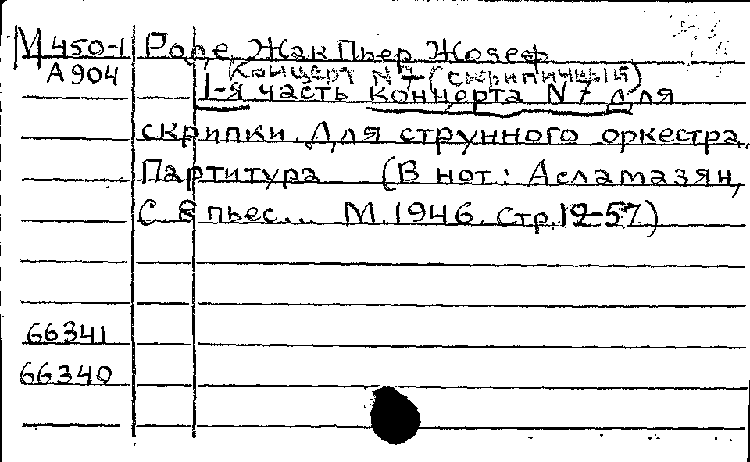 М 450-1 Роде, Жак Пьер Жозеф
А 904 Концерт N 7 (скрипичный)
1-я часть концерта N 7 для
скрипки. Для струнного оркестра.
Партитура (В нот: Асламазян,
С 8 пьес... М. 1946. стр. 12-57)
66341
66340